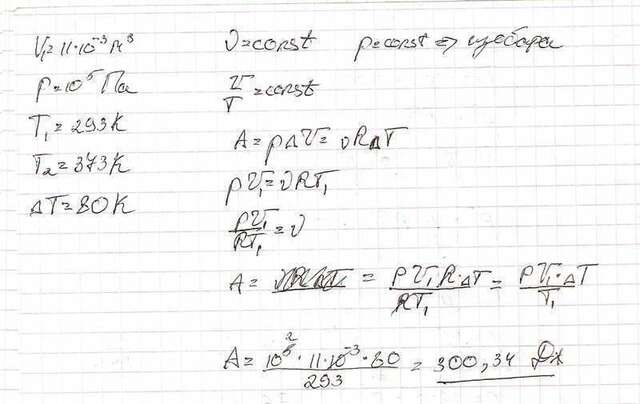 V₁=11·10⁻³ м³
p=10⁵ Па
T₁=293K
T₂=373K
ΔT=80K
ν=const p=const => изобара
V/T=const
A=pΔV=νRΔT
pV₁=νRT₁
pV₁/RT₁=ν
A= = pV₁R·ΔT/RT₁ = pV₁·ΔT/T₁
A= 10²·11·10⁻³·80/293 = 300,34 Дж